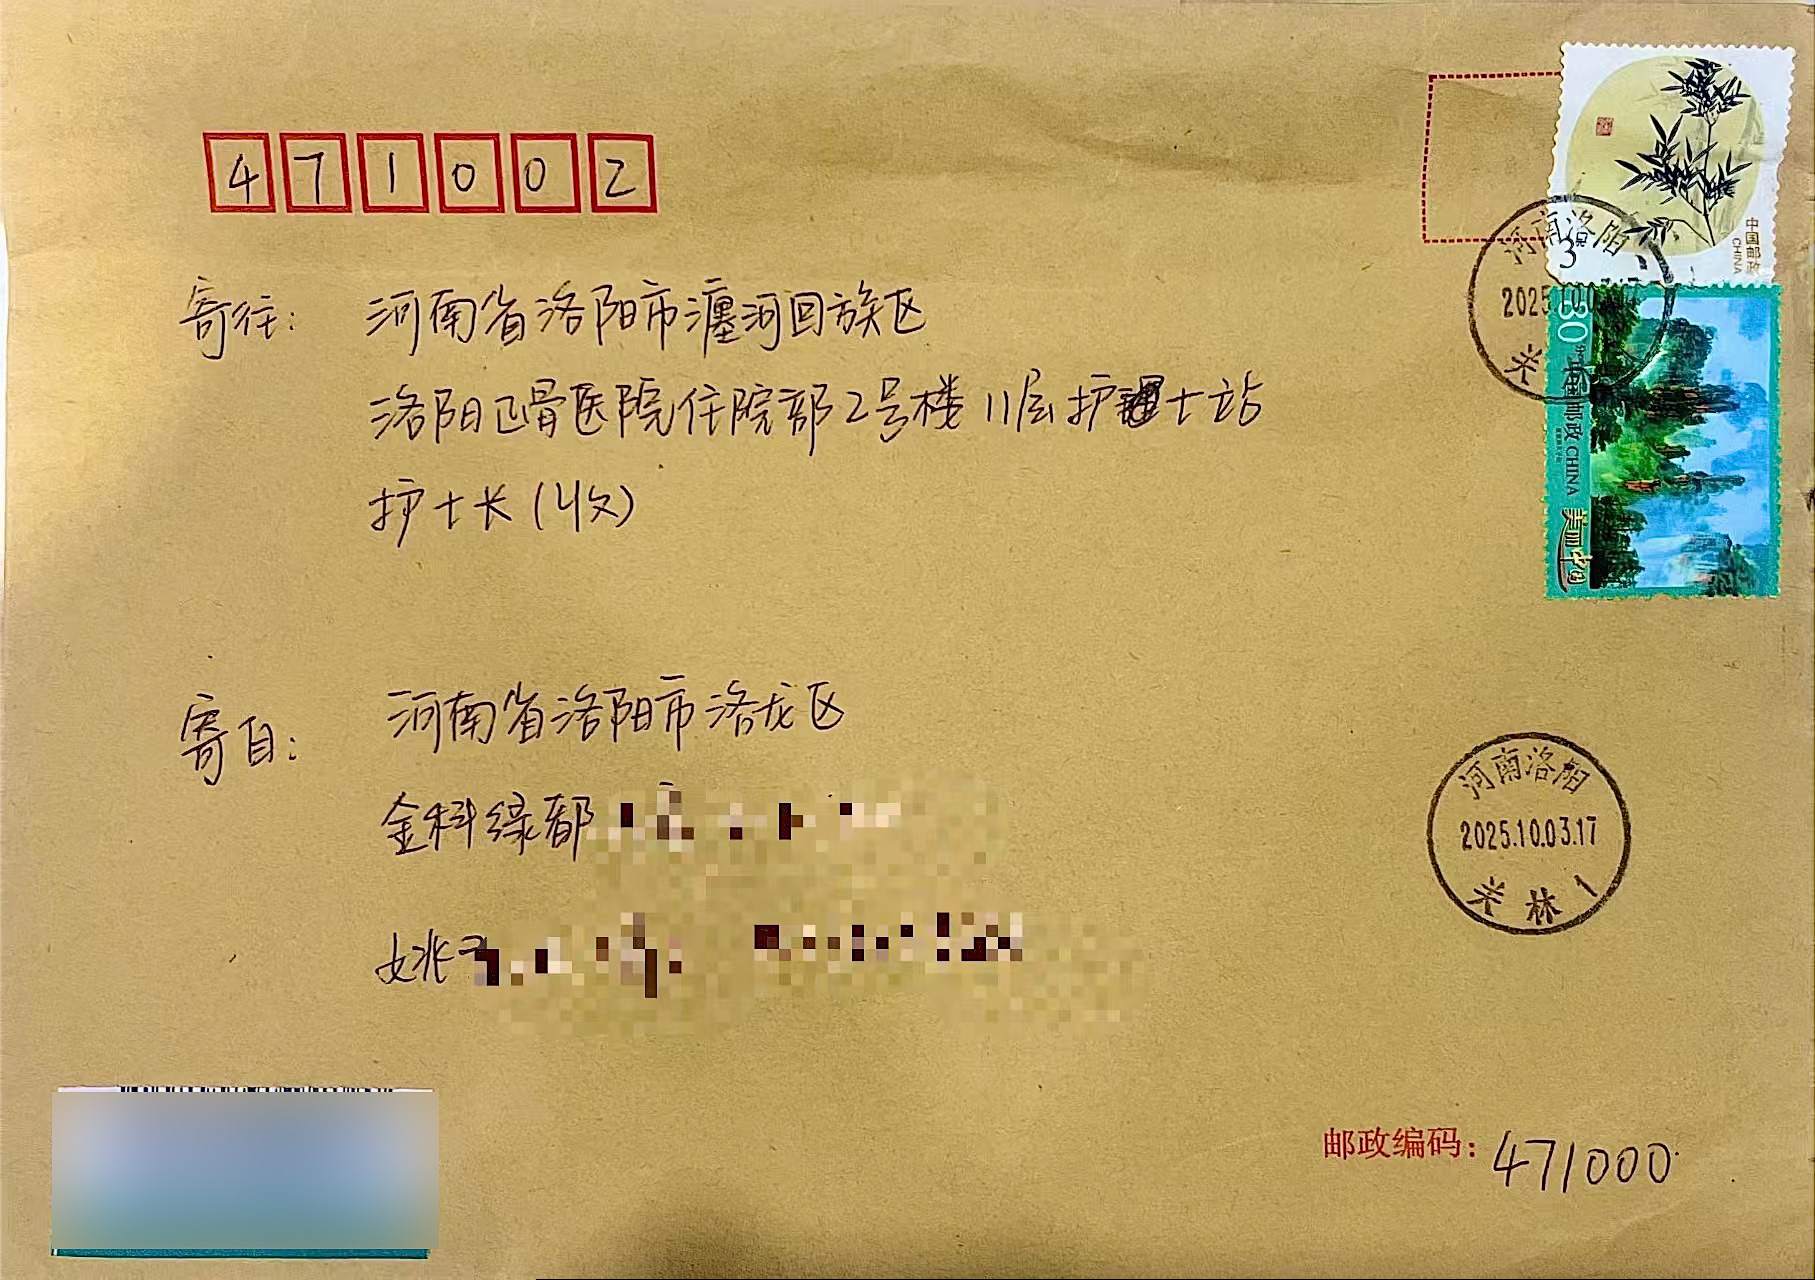 471002
寄往: 河南省洛阳市瀍河回族区
洛阳正骨医院住院部2号楼11层护士站
护士长(收)
寄自: 河南省洛阳市洛龙区
金科绿都
姚
邮政编码: 471000
中国邮政
CHINA
河南洛阳
2025.10.0
关
30
中国邮政 CHINA
美丽中国
河南洛阳
2025.10.03.17
关林1